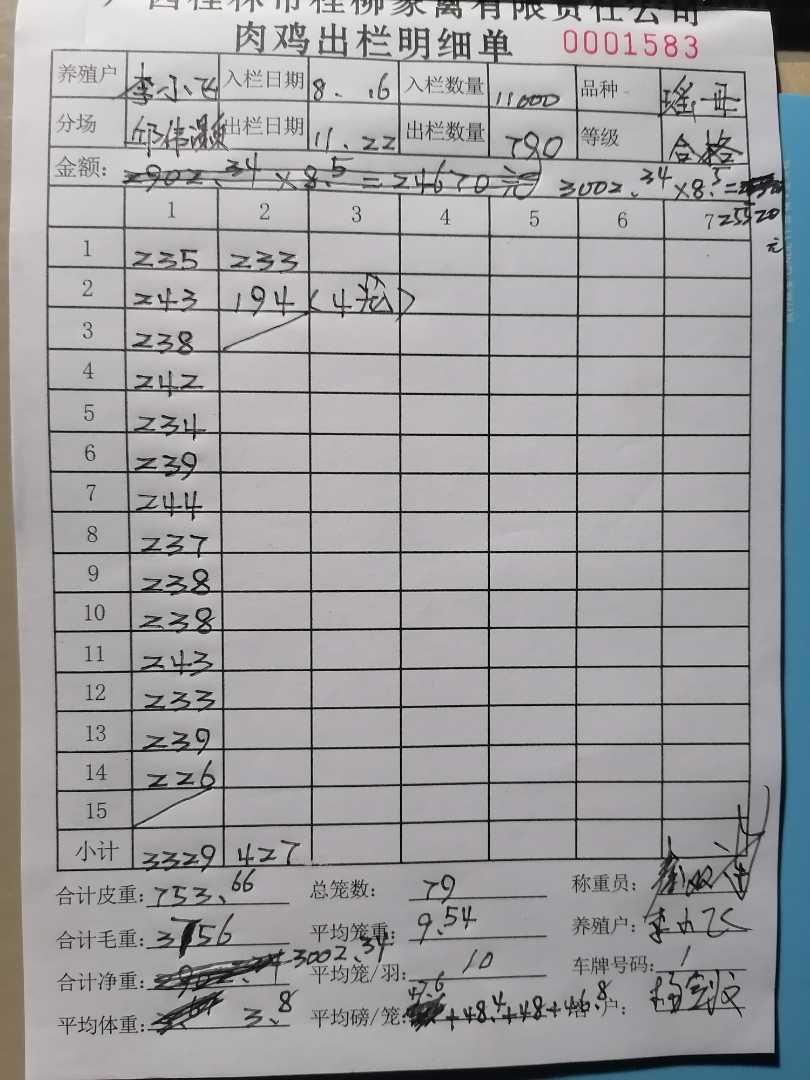 广西桂林市桂柳家禽有限责任公司
肉鸡出栏明细单 0001583
养殖户 李小飞 入栏日期 8.16 入栏数量 11000 品种 瑶鸡
分场 出栏日期 11.22 出栏数量 790 等级 合格
金额: 2902.34×8.5=24670元 3002.34×8.5=
25520
元
1 2 3 4 5 6 7
1 235 233
2 243 194 (4笼)
3 238
4 242
5 234
6 239
7 244
8 237
9 238
10 238
11 243
12 233
13 239
14 226
15
小计 3329 427
合计皮重: 753.66 总笼数: 79 称重员:
合计毛重: 3756 平均笼重: 9.54 养殖户: 李小飞
合计净重: 2902.34 3002.34 平均笼/羽: 10 车牌号码: 1
平均体重: 3.8 平均磅/笼: 47.6+48.4+48+46.8 客户: